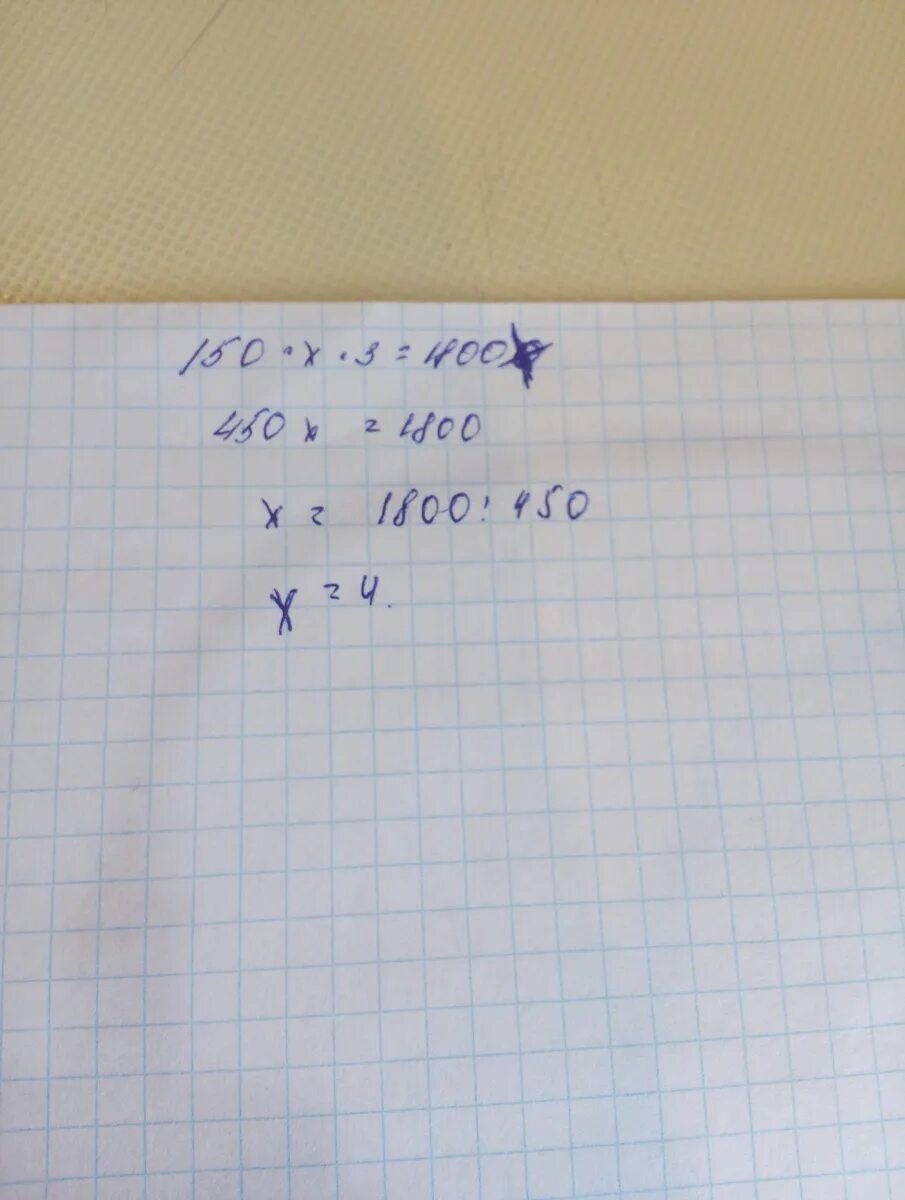 150 · x · 3 = 1800
450 x = 1800
x = 1800 : 450
x = 4.